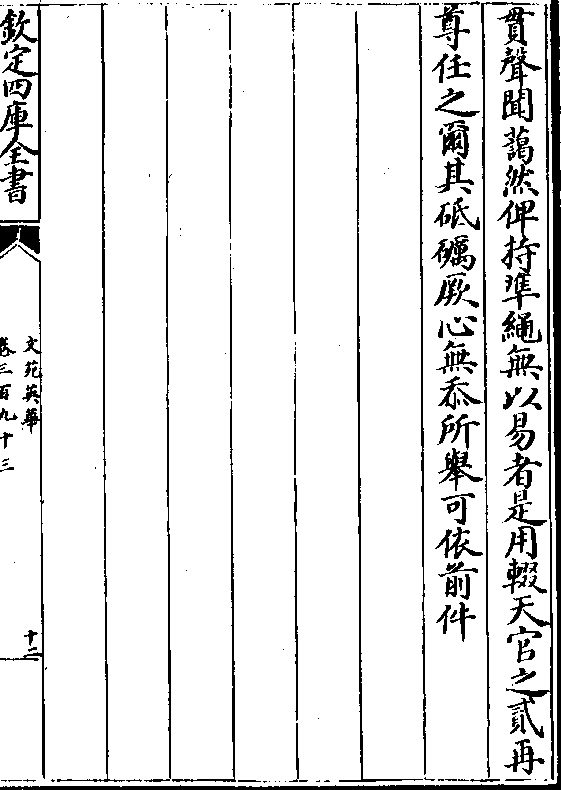 貫聲聞藹然俾持準繩無以易者是用輟天官之貳再
尊任之爾其砥礪厥心無忝所舉可依前件
欽定四庫全書
文苑英華
卷三百九十三
十二